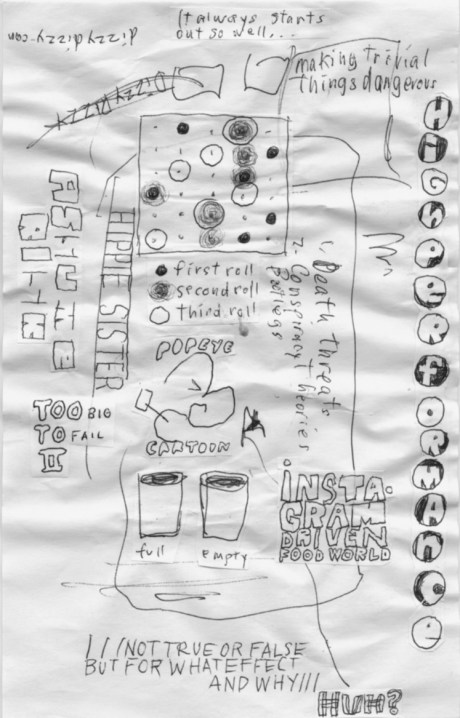 It always starts
out so well...
dizzy dizzy-con
making trivial
things dangerous
DIZZY DIZZY
HIGH PERFORMANCE
HIPPIE SISTER
first roll
second roll
third roll
1. Death threats
2. Conspiracy theories
POPEYE
CARTOON
TOO BIG
TO FAIL
II
INSTA-
GRAM
DRIVEN
FOOD WORLD
full
empty
///NOT TRUE OR FALSE
BUT FOR WHAT EFFECT
AND WHY///
HUH?